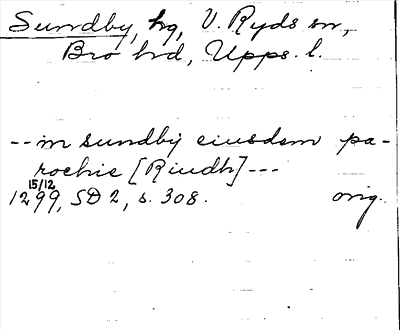 Sundby, hg, V. Ryds sn,
Bro hd, Upps. l.
-- in sundby eiusdem pa-
rochie [Riudh] ---
15/12
1299, SD 2, s. 308. orig.